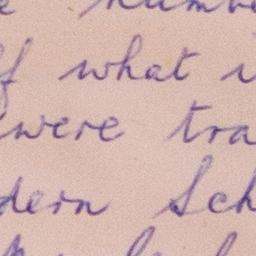 numbe
f what i
were tra
dern Sch